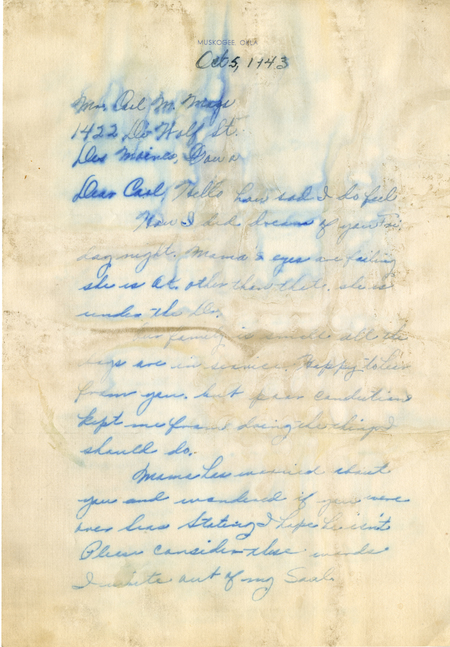 MUSKOGEE, OKLA.
Oct 5, 1943
Mr. M. Mays
1422 De Wolf St.
Des Moines, Iowa
Dear Carl, Hello how sad I do feel
Now I did dream of you
day night. Mama's eyes are failing
she is ok other than that. she is
under the Dr.
family is all the
boys are in service. Happy to hear
from you. but poor conditions
kept me from doing the things I
should do.
Mama has worried about
you and wondered if you were
over seas I hope he isn't
Please consider these words
I write out of my Soul.